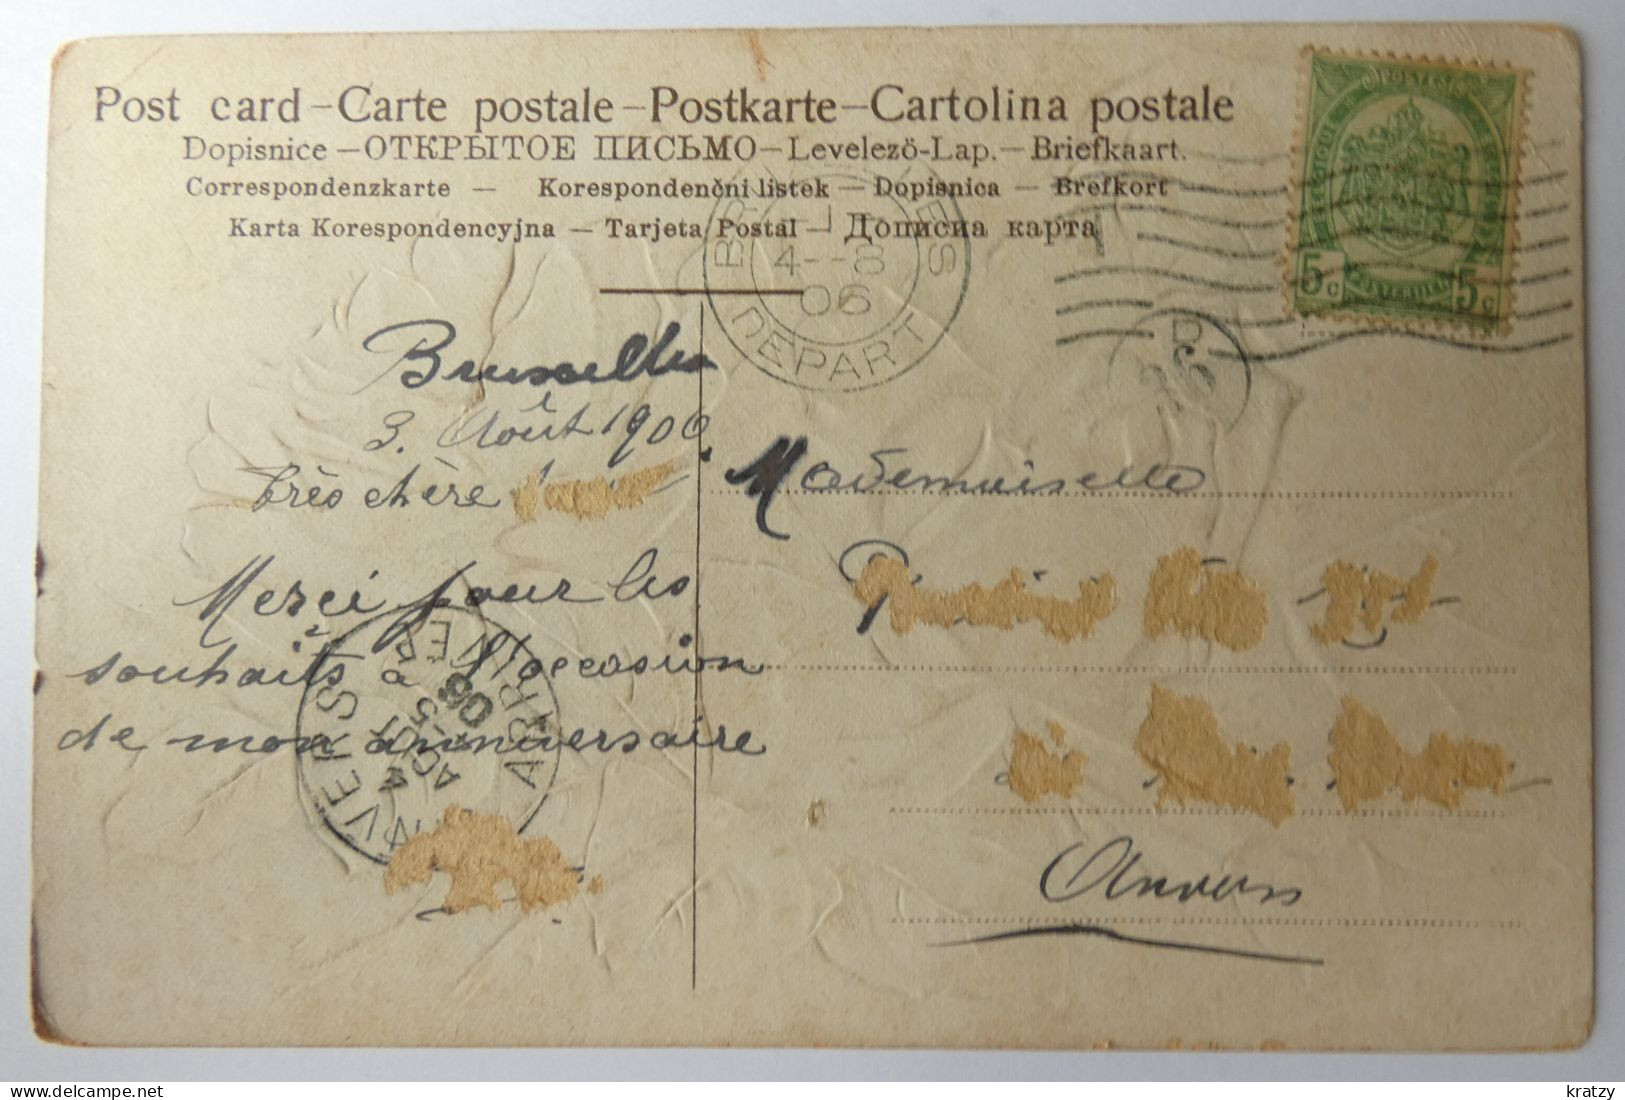 Post card – Carte postale – Postkarte – Cartolina postale
Dopisnice – ОТКРЫТОЕ ПИСЬМО – Levelező-Lap. – Briefkaart.
Correspondenzkarte – Korespondenčni listek – Dopisnica – Brefkort
Karta Korespondencyjna – Tarjeta Postal – Дописна карта
POSTES
5c POSTERIJEN 5c
4--8
06
DEPART
Bruxelles
3. Août 1906.
très chère
Merci pour les
souhaits à l'occasion
de mon anniversaire
ANVERS
ARRIVEE
06
Mademoiselle
Anvers
kratzy